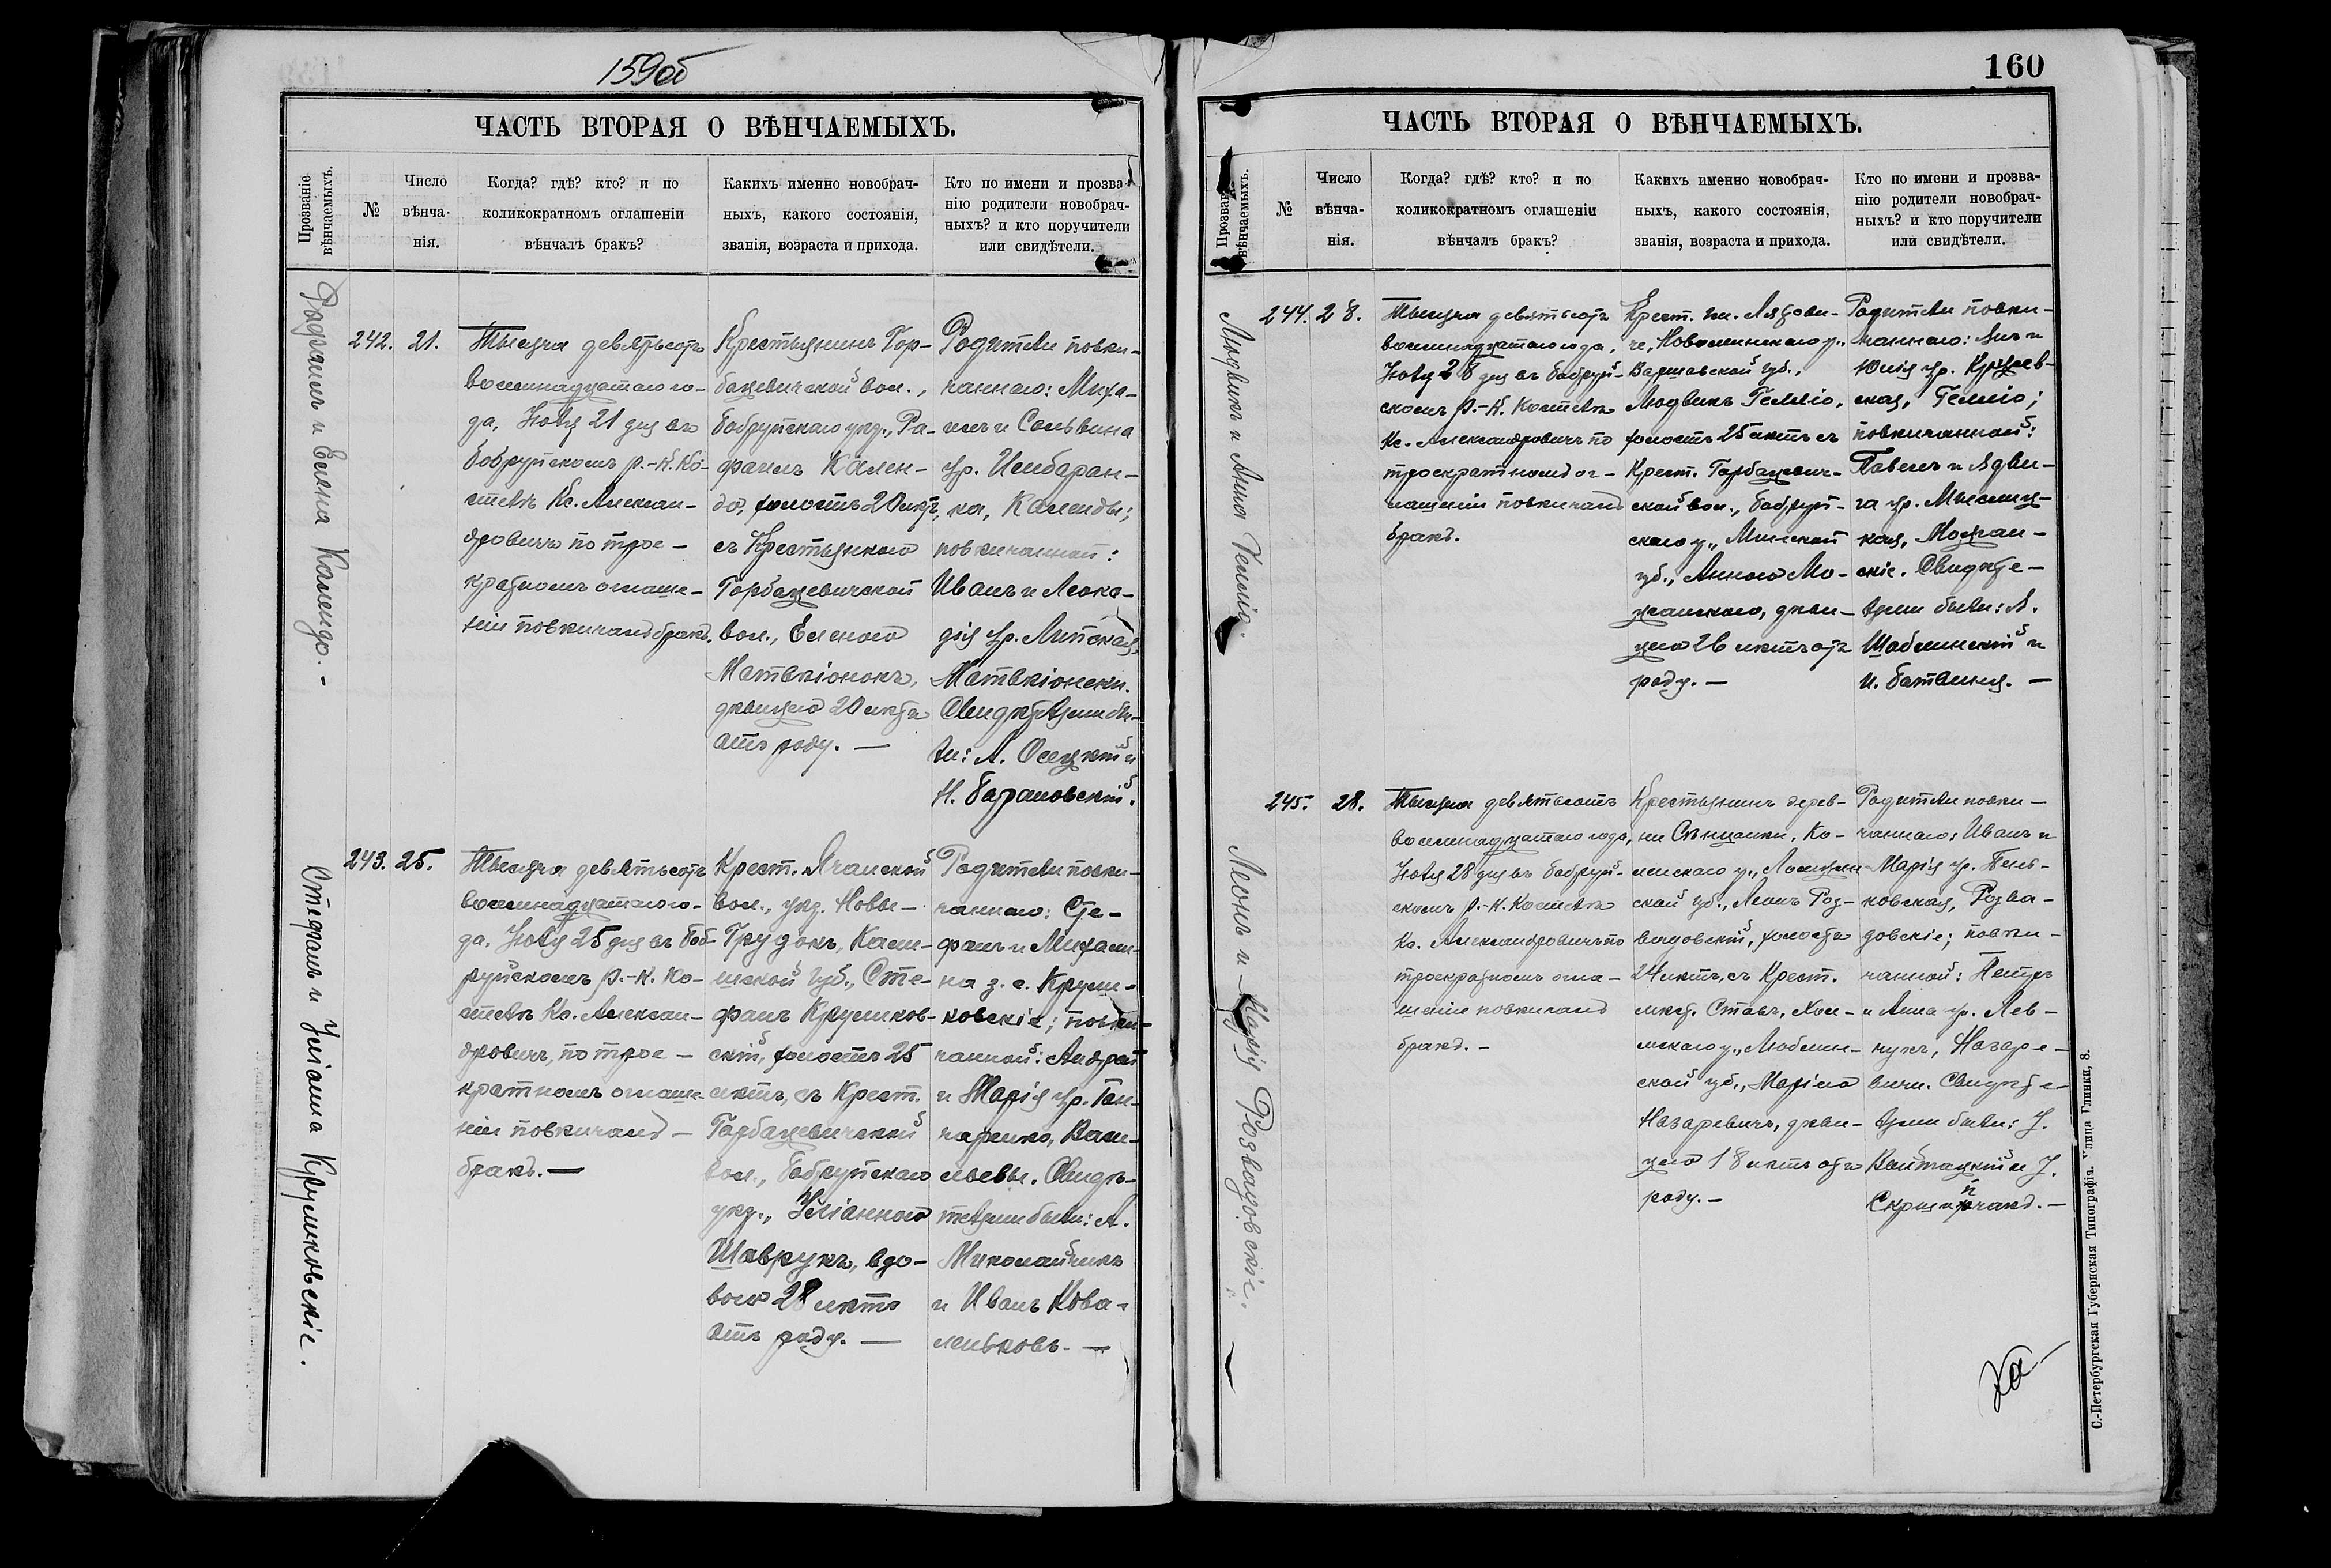 159об
ЧАСТЬ ВТОРАЯ О ВѢНЧАЕМЫХЪ.
Прозваніе
вѣнчаемыхъ.
№
Число
вѣнча-
нія.
Когда? гдѣ? кто? и по
коликократномъ оглашеніи
вѣнчалъ бракъ?
Какихъ именно новобрач-
ныхъ, какого состоянія,
званія, возраста и прихода.
Кто по имени и прозва-
нію родители новобрач-
ныхъ? и кто поручители
или свидѣтели.
Рафаилъ и Елена Календо. -
242.
21.
Тысяча девятьсотъ
восемнадцатаго го-
да, Іюля 21 дня въ
Бобруйскомъ р.-к. Ко-
стелѣ Кс. Алексан-
дровичъ по трое-
кратномъ оглаше-
ніи повѣнчалъ бракъ.
Крестьянинъ Гор-
бацевичской вол.,
Бобруйскаго уѣз., Ра-
фаилъ Кален-
до, холостъ 20 лѣтъ,
съ Крестьянкою
Горбацевичской
вол., Еленою
Матвѣіонокъ,
дѣвицею 20 лѣтъ
отъ роду. —
Родители повѣн-
чаннаго: Миха-
илъ и Сальвина
ур. Цимбаран-
ка, Календы;
повѣнчанной:
Иванъ и Леока-
дія ур. Липская,
Матвѣіонки.
Свидѣтелями бы-
ли: А. Осецкій и
Н. Барановскій.
Стефанъ и Уліанна Крумковскіе.
243.
25.
Тысяча девятьсотъ
восемнадцатаго го-
да, Іюля 25 дня въ Боб-
руйскомъ р.-к. Ко-
стелѣ Кс. Алексан-
дровичъ, по трое-
кратномъ оглаше-
ніи повѣнчалъ
бракъ. —
Крест.
вол., уѣз. Новы-
Грудокъ,
губ., Сте-
фанъ Крумков-
скій, холостъ 25
лѣтъ, съ Крест.
Горбацевичской
вол., Бобруйскаго
уѣз., Уліанною
Шаврукъ, вдо-
вою 28 лѣтъ
отъ роду. —
Родители повѣн-
чаннаго: Сте-
фанъ и Михали-
на з. с. Крум-
ковскіе; повѣн-
чанной: Андрей
и Марія ур. Ган-
чаренко, Васи-
льевы. Свидѣ-
телями были: А.
Миколайчикъ
и Иванъ Кова-
леньковъ. —
160
ЧАСТЬ ВТОРАЯ О ВѢНЧАЕМЫХЪ.
вѣнчаемыхъ.
№
Число
вѣнча-
нія.
Когда? гдѣ? кто? и по
коликократномъ оглашеніи
вѣнчалъ бракъ?
Какихъ именно новобрач-
ныхъ, какого состоянія,
званія, возраста и прихода.
Кто по имени и прозва-
нію родители новобрач-
ныхъ? и кто поручители
или свидѣтели.
Людвикъ и Анна
244.
28.
Тысяча девятьсотъ
восемнадцатаго года,
Іюля 28 дня въ Бобруй-
скомъ р.-к. Костелѣ
Кс. Александровичъ по
троекратномъ ог-
лашеніи повѣнчалъ
бракъ.
Крест. им. Лядови-
че, Новоминскаго у.,
Варшавской губ.,
Людвикъ Гемліо,
холостъ 25 лѣтъ съ
Крест. Горбацевич-
ской вол., Бобруй-
скаго у., Минской
губ., Анною Мо-
жанскою, дѣви-
цею 26 лѣтъ отъ
роду. —
Родители повѣн-
чаннаго: Янъ и
Юлія ур.
ская, Гемліо;
повѣнчанной:
Павелъ и Ядви-
га ур.
кая, Можан-
скіе. Свидѣте-
лями были: А.
Шаблинскій и
И. Батвиня. —
Леонъ и Марія Розвадовскіе.
245.
28.
Тысяча девятьсотъ
восемнадцатаго года,
Іюля 28 дня въ Бобруй-
скомъ р.-к. Костелѣ
Кс. Александровичъ по
троекратномъ огла-
шеніи повѣнчалъ
бракъ. -
Крестьянинъ дерев-
ни Сѣнцанки, Ко-
льнскаго у., Ломжин-
ской губ., Леонъ Роз-
вадовскій, холостъ
24 лѣтъ, съ Крест.
мѣст. Ставъ, Хол-
мскаго у., Люблин-
ской губ., Маріею
Назаревичъ, дѣви-
цею 18 лѣтъ отъ
роду. —
Родители повѣн-
чаннаго: Иванъ и
Марія ур. Пень-
ковская, Розва-
довскіе; повѣн-
чанной: Петръ
и Анна ур. Лев-
чукъ, Назаре-
вичи. Свидѣте-
лями были: І.
Войтацкій и І.
С.-Петербургская Губернская Типографія. Улица Глинки, 8.